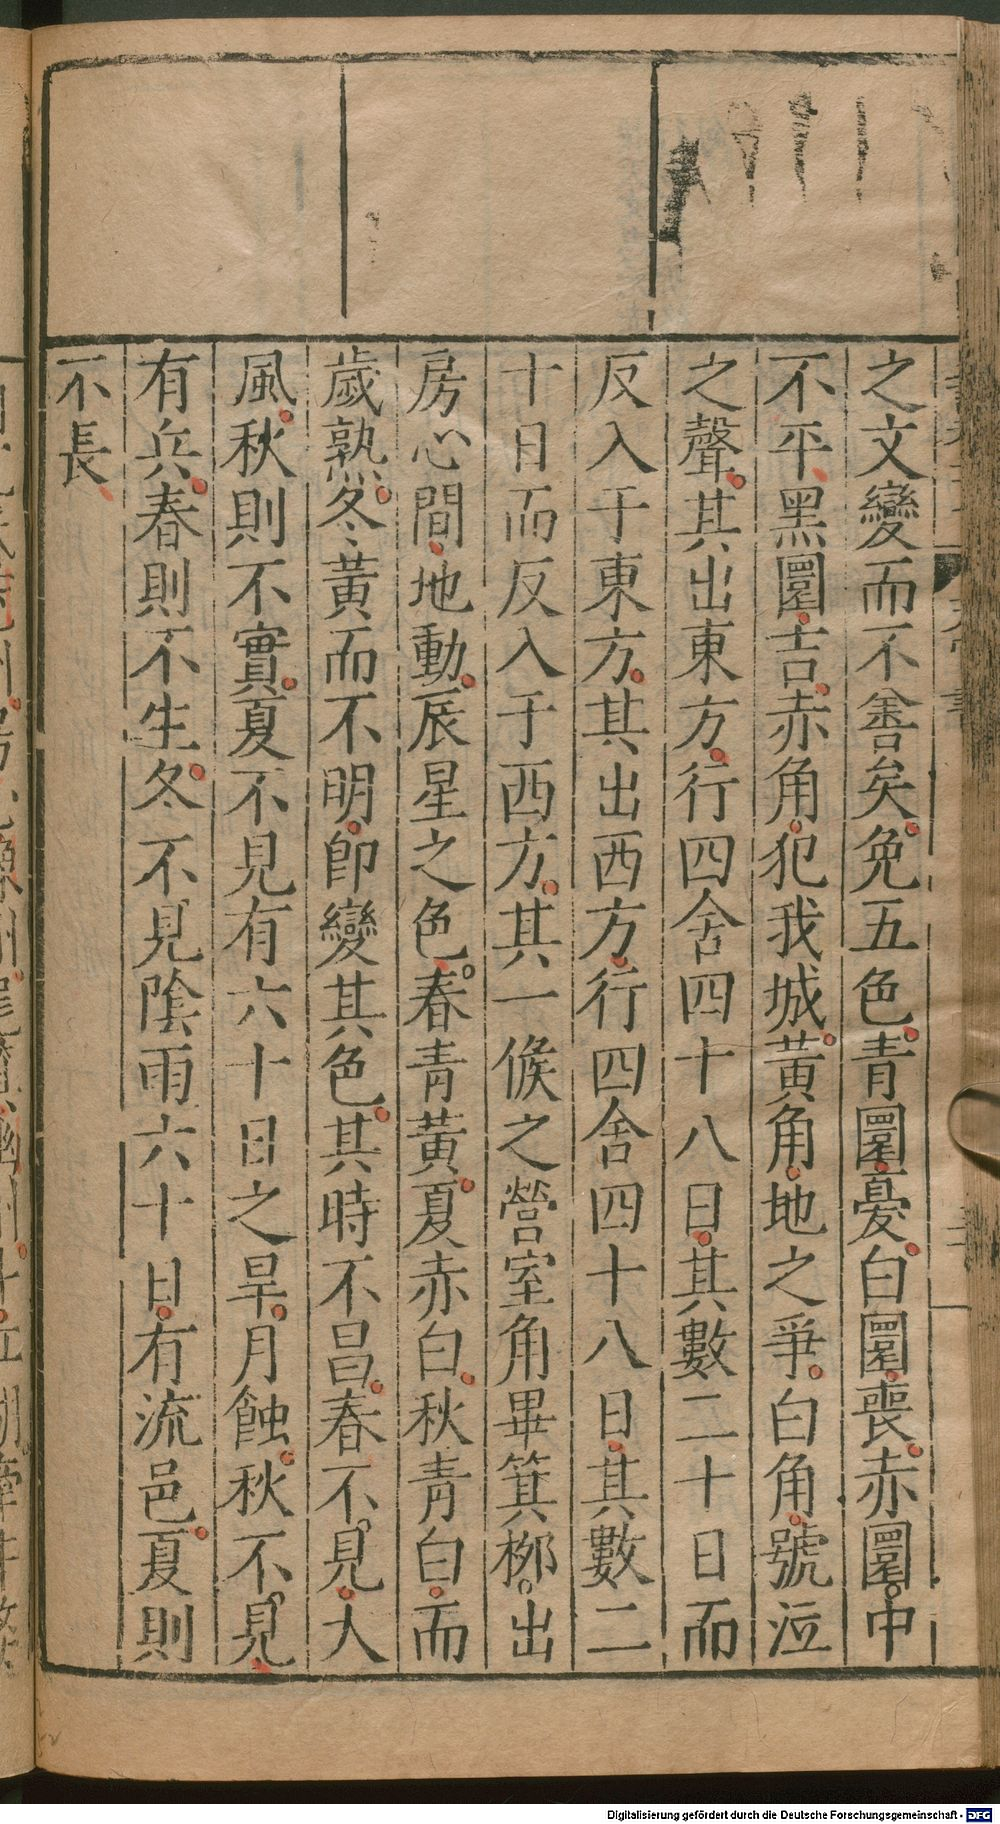 之文變而不善矣免五色青圜憂白圜喪赤圜中
不平黑圜吉赤角犯我城黃角地之爭白角號泣
之聲其出東方行四舍四十八日其數二十日而
反入于東方其出西方行四舍四十八日其數二
十日而反入于西方其一候之營室角畢箕桺出
房心間地動辰星之色春青黃夏赤白秋青白而
歲熟冬黃而不明卽變其色其時不昌春不見大
風秋則不實夏不見有六十日之旱月蝕秋不見
有兵春則不生冬不見陰雨六十日有流邑夏則
不長
Digitalisierung gefördert durch die Deutsche Forschungsgemeinschaft - DFG